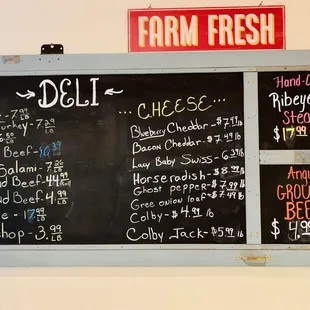 FARM FRESH
DELI
- 7.99
Turkey - 7.29 LB
Beef - 10.39 LB
Salami - 7.26 LB
Beef 44.99
Beef 4.99 LB
- 17.99 LB
chop - 3.99 LB
... CHEESE ...
Blueberry Cheddar - $7.49 lb
Bacon Cheddar - $7.49 lb
Lacy Baby Swiss - 6.39 lb
Horseradish - $8.99 lb
Ghost pepper - $7.99 lb
Gree onion loaf - $7.99 lb
Colby - $4.99 lb
Colby Jack - $5.99 lb
Hand-C
Ribeye
Stea
$17.99
Angu
GROU
BEE
$4.99